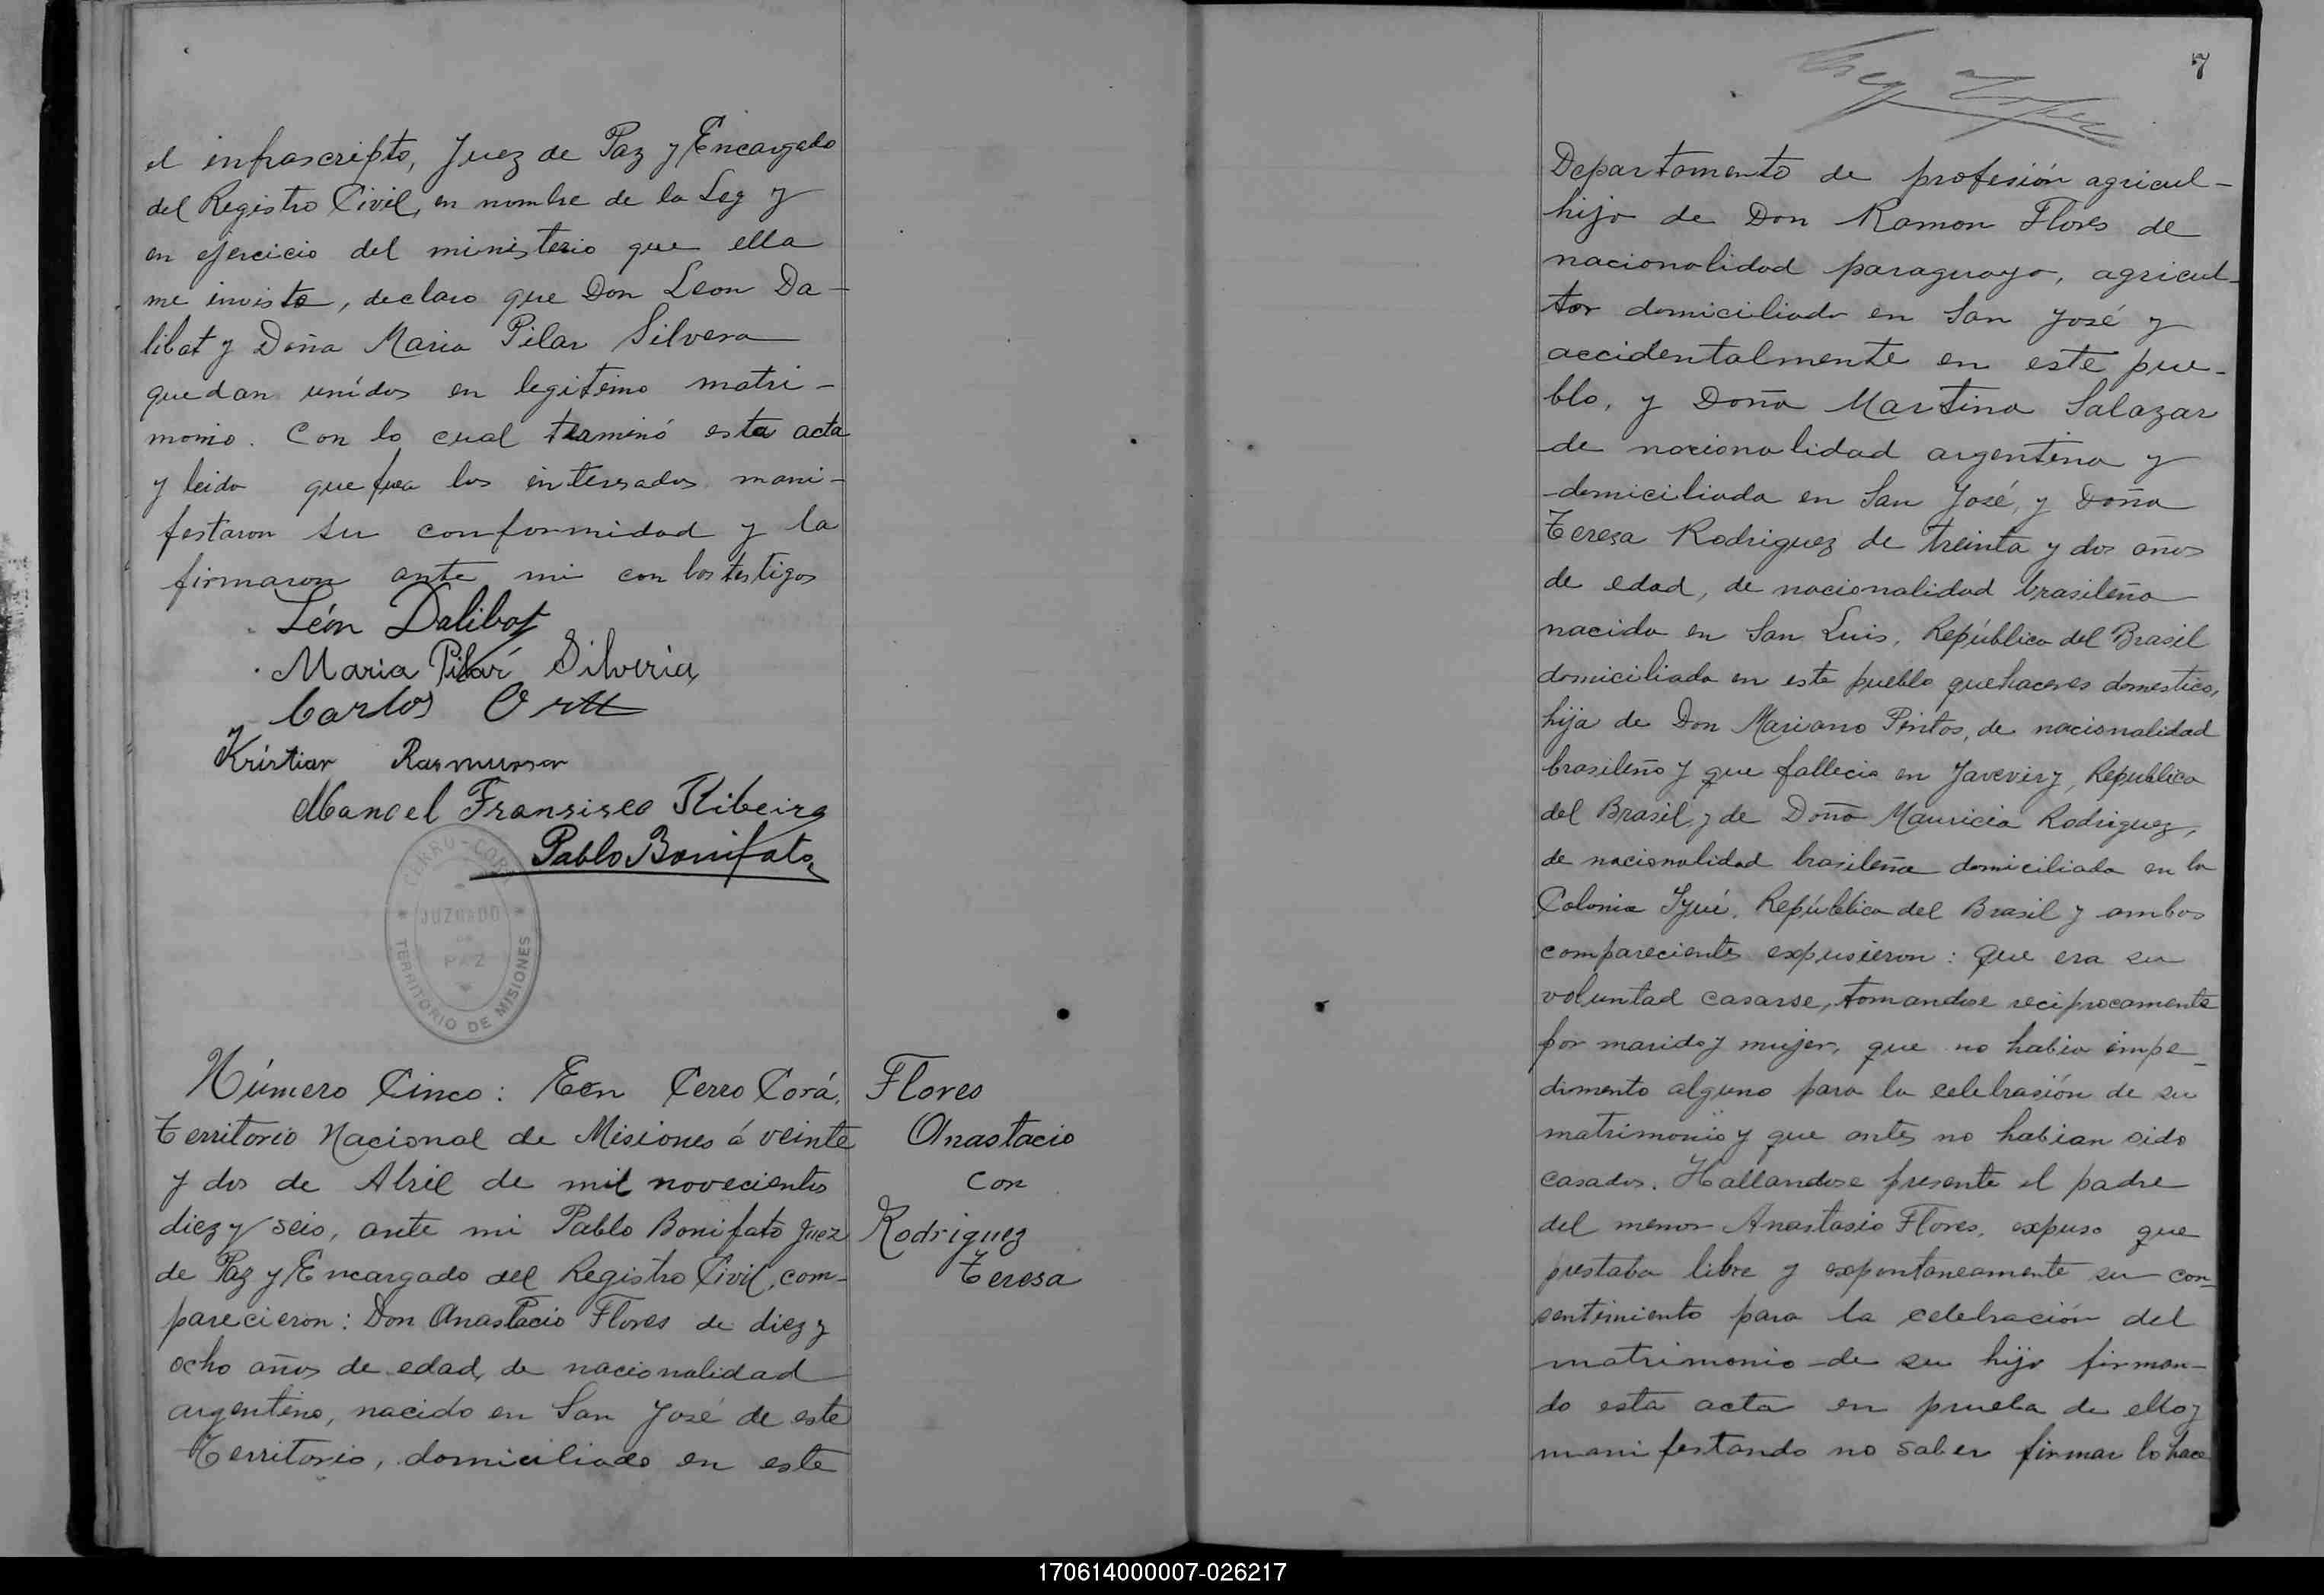 el infrascripto, Juez de Paz y Encargado
del Registro Civil, en nombre de la Ley y
en ejercicio del ministerio que ella
me inviste, declaro que Don Leon Da-
libot y Doña Maria Pilar Silvera
quedan unidos en legitimo matri-
monio. Con lo cual terminó esta acta
y leida que fuea los interesados mani-
festaron su conformidad y la
firmaron ante mi con los testigos
León Dalibot
Maria Pilar Silveria
Carlos Ortt
Kristian Rasmussen
Manoel Fransisco Ribeiro
Pablo Bonifato
CERRO-CORÁ
JUZGADO
DE
PAZ
TERRITORIO DE MISIONES
Número Cinco: Een Cerro Corá,
Territorio Nacional de Misiones á veinte
y dos de Abril de mil novecientos
diez y seis, ante mi Pablo Bonifato Juez
de Paz y Encargado del Registro Civil, com-
parecieron: Don Anastacio Flores de diez y
ocho años de edad, de nacionalidad
argentino, nacido en San José de este
Territorio, domiciliado en este
Flores
Anastacio
con
Rodriguez
Teresa
7
Departamento de profesión agricul-
hijo de Don Ramon Flores de
nacionalidad paraguayo, agricul-
tor domiciliado en San José y
accidentalmente en este pue-
blo, y Doña Martina Salazar
de nacionalidad argentina y
domiciliada en San José, y Doña
Teresa Rodriguez de treinta y dos años
de edad, de nacionalidad brasileña
nacida en San Luis, República del Brasil
domiciliada en este pueblo quehaceres domesticos,
hija de Don Mariano Pintos, de nacionalidad
brasileño y que fallecio en Yaveviry, Republica
del Brasil, y de Doña Mauricia Rodriguez,
de nacionalidad brasileña domiciliada en la
Colonia Iyuí, República del Brasil y ambos
comparecientes expusieron: que era su
voluntad casarse, tomandose reciprocamente
por marido y mujer, que no habia impe-
dimento alguno para la celebrasión de su
matrimonio y que antes no habian sido
casados. Hallandose presente el padre
del menor Anastasio Flores, expuso que
prestaba libre y expontaneamente su con-
sentimiento para la celebración del
matrimonio de su hijo firman-
do esta acta en prueba de ello y
manifestando no saber firmar lo hace
170614000007-026217